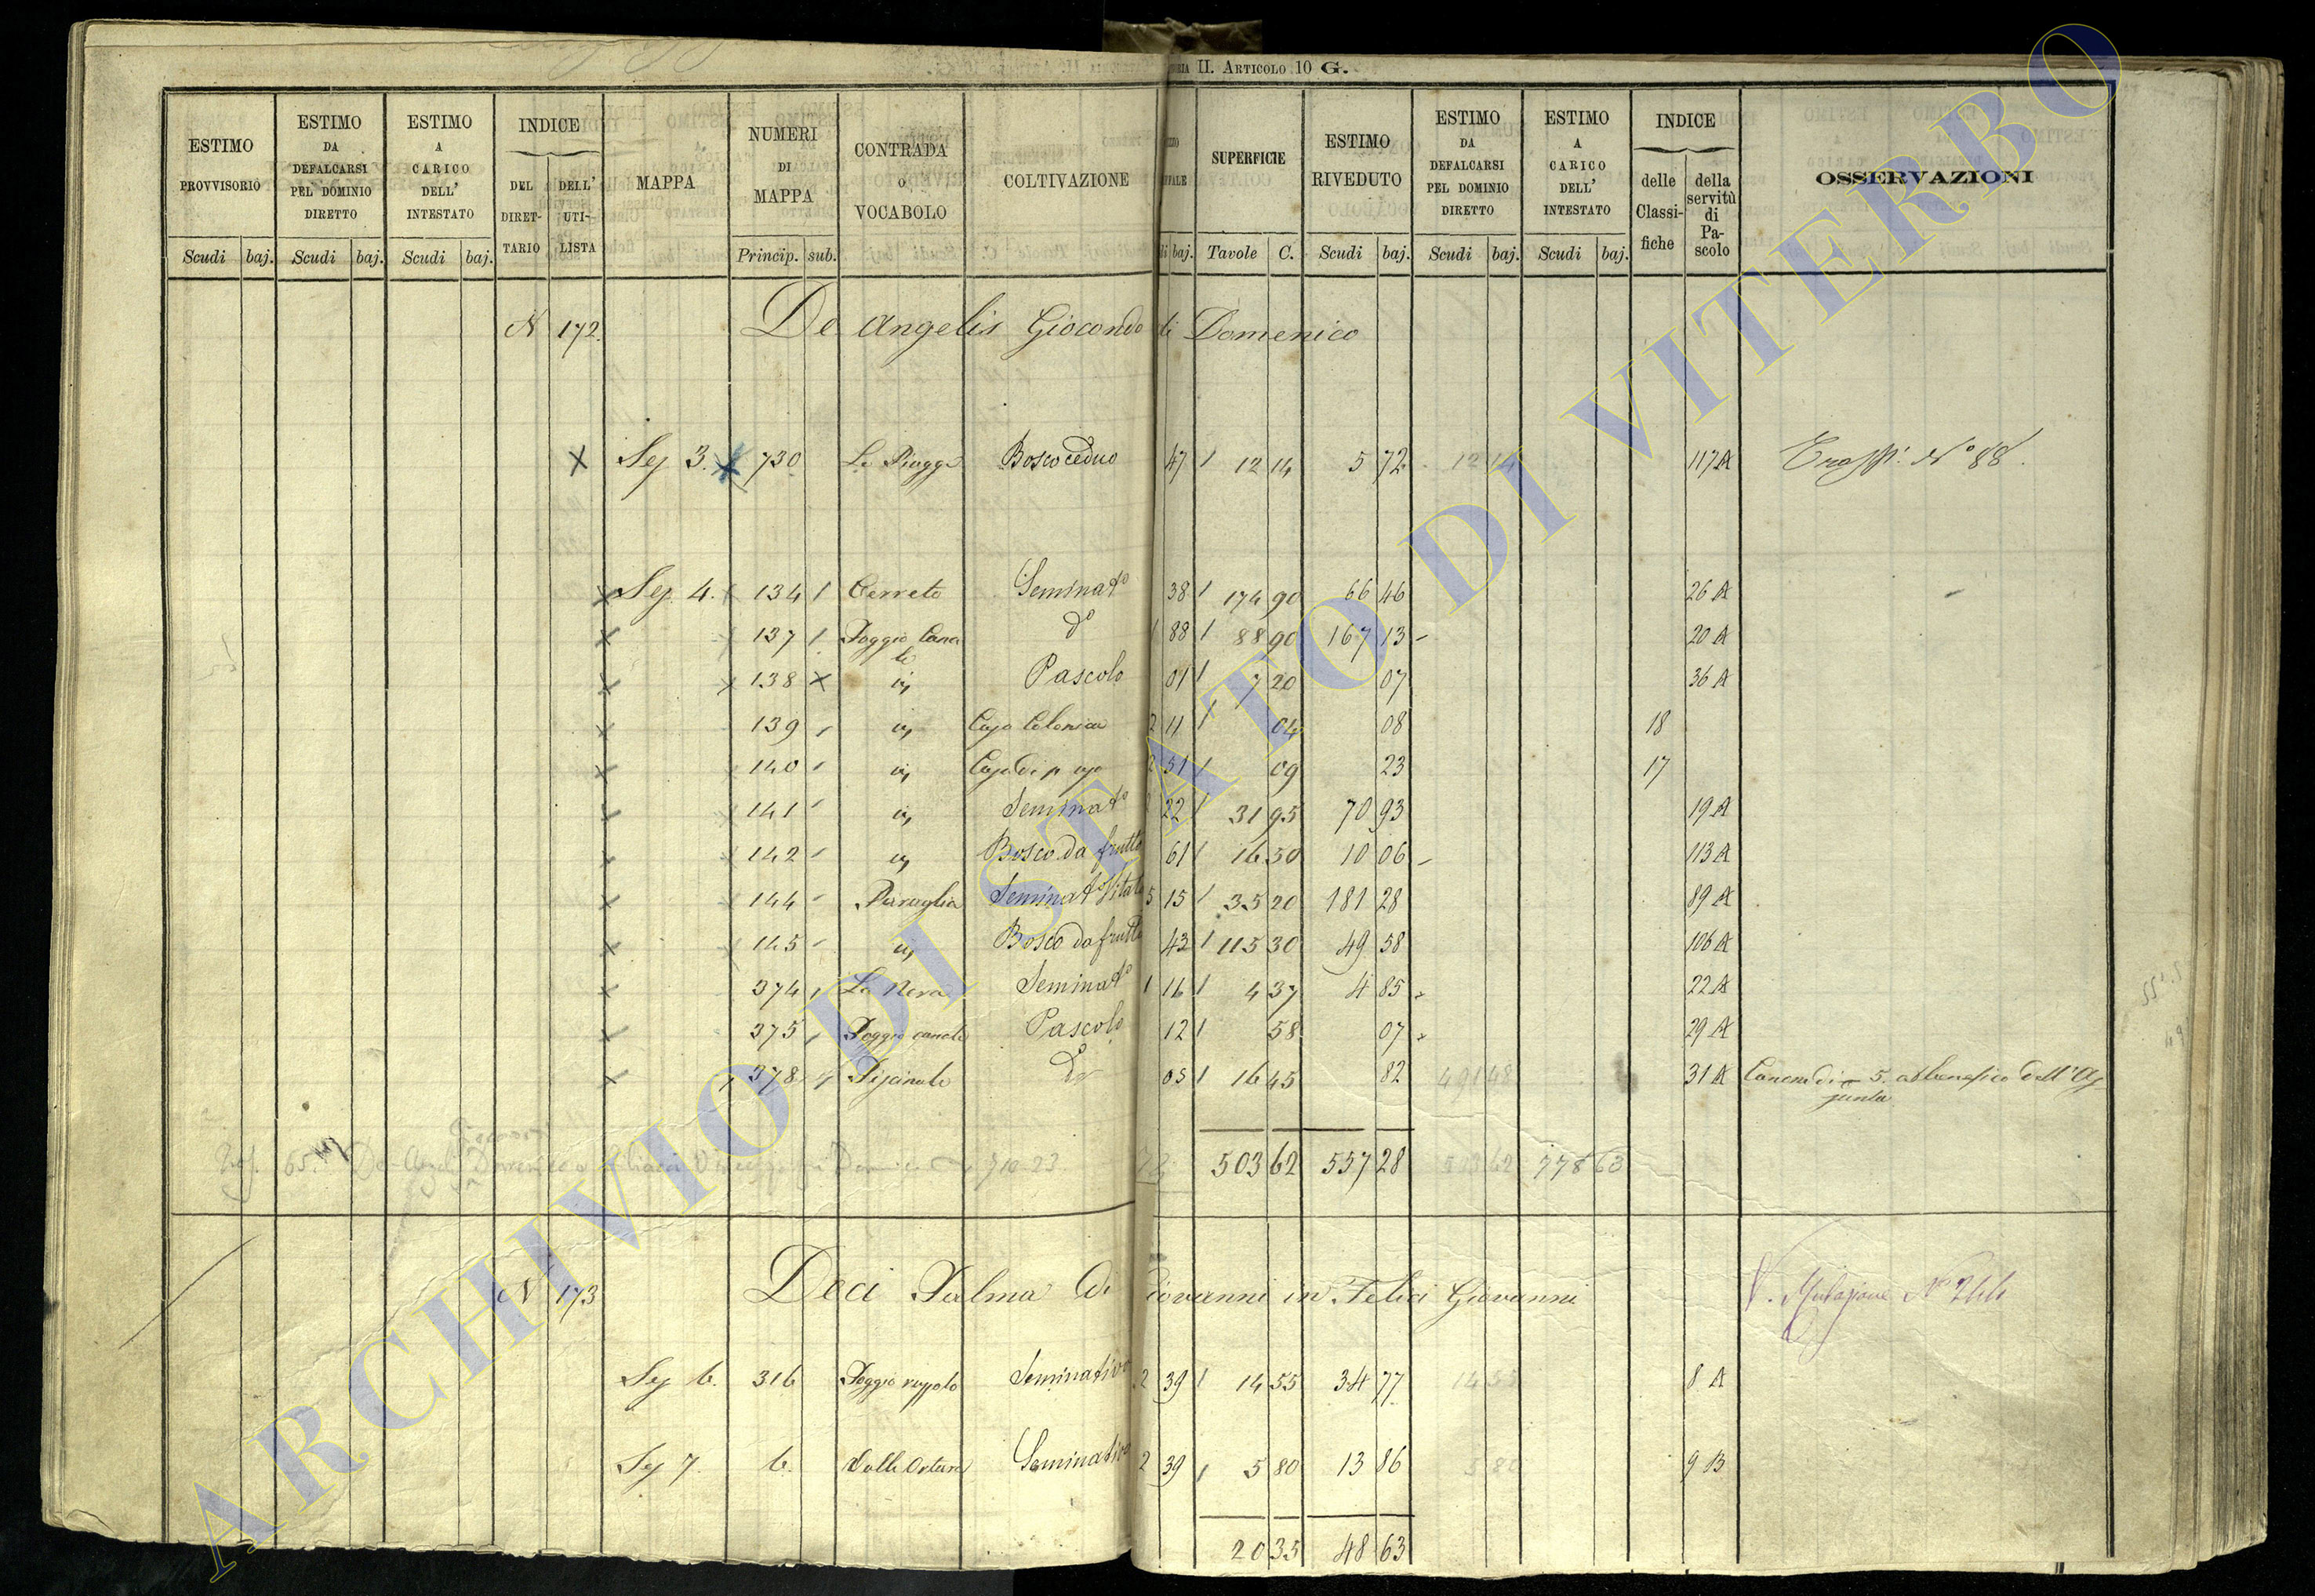 II. ARTICOLO 10 G.
ESTIMO PROVVISORIO | ESTIMO DA DEFALCARSI PEL DOMINIO DIRETTO | ESTIMO A CARICO DELL' INTESTATO | INDICE DEL DIRETTARIO | DELL' UTILISTA | MAPPA | NUMERI DI MAPPA | CONTRADA O VOCABOLO | COLTIVAZIONE | SUPERFICIE | ESTIMO RIVEDUTO | ESTIMO DA DEFALCARSI PEL DOMINIO DIRETTO | ESTIMO A CARICO DELL' INTESTATO | INDICE delle Classifiche | della servitù di Pascolo | OSSERVAZIONI
Scudi baj. Scudi baj. Scudi baj. Princip. sub. baj. Tavole C. Scudi baj. Scudi baj. Scudi baj.
N 172. De Angelis Giocondo di Domenico
X Sez 3. X 730 Le Piagge Bosco ceduo 47 / 12 14 5 72 12 14 117 A N° 88.
X Sez. 4. 134 / Cerreto Seminato 38 / 174 90 66 46 26 A
X 137 / Poggio Canale d° 1 88 / 88 90 167 13 20 A
X 138 X Pascolo 01 / 7 20 07 36 A
X 139 Casa Colonica 2 11 / 04 08 18
X 140 Casa di p uso 2 51 / 09 23 17
X 141 Seminato 2 22 / 31 95 70 93 19 A
X 142 Bosco da frutto 61 / 16 50 10 06 113 A
X 144 Seminato Vitato 5 15 / 35 20 181 28 89 A
X 145 Bosco da frutto 43 / 115 30 49 58 106 A
X 374 La Nera Seminato 1 16 / 4 37 4 85 22 A
X 375 Poggio canale Pascolo 12 / 58 07 29 A
X 378 d° 05 / 16 45 82 491 48 31 A 5. dell'
503 62 557 28 503 62 778 63
N 173 Deci Palma di Giovanni in Felici Giovanni V. Mutazione N° 244
Sez 6. 316 Seminativo 2 39 / 14 55 34 77 14 55 8 A
Sez 7. 6. Seminativo 2 39 / 5 80 13 86 5 80 9 B
20 35 48 63
ARCHIVIO DI STATO DI VITERBO